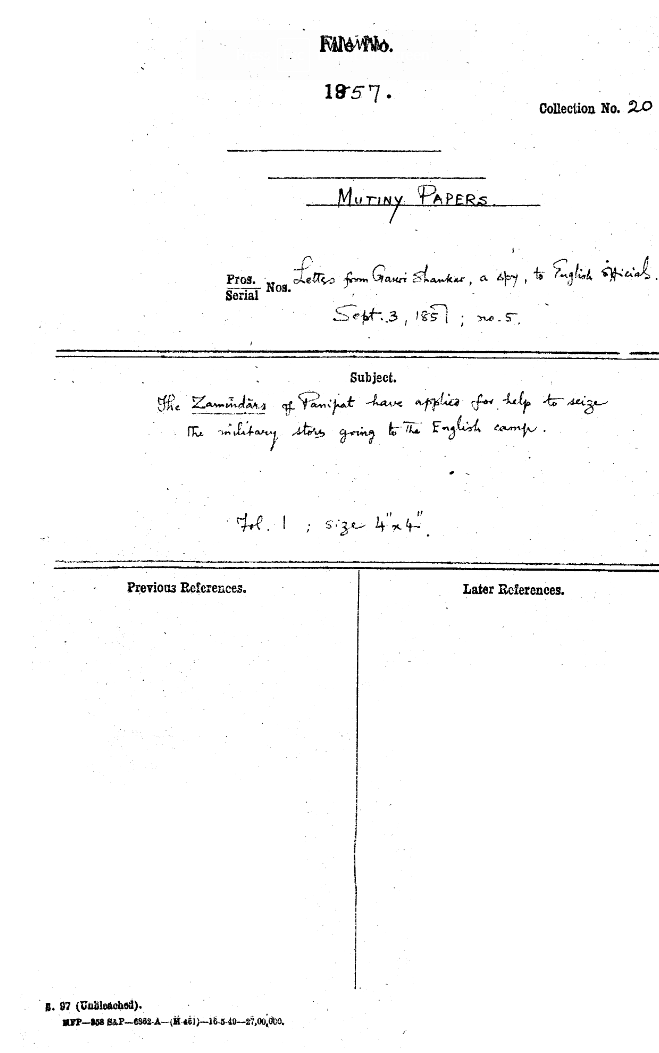 File No.
1857.
Collection No. 20
MUTINY PAPERS
Pros.
Serial Nos. Letters from Gauri Shankar, a spy, to English officials.
Sept. 3, 1857; no. 5.
Subject.
The Zamindārs of Panipat have applied for help to seize
the military stores going to the English camp.
Fol. 1 ; size 4"x4".
Previous References.
Later References.
S. 97 (Unbleached).
MFP—858 S&P—6862-A—(M-461)—16-5-49—27,00,000.